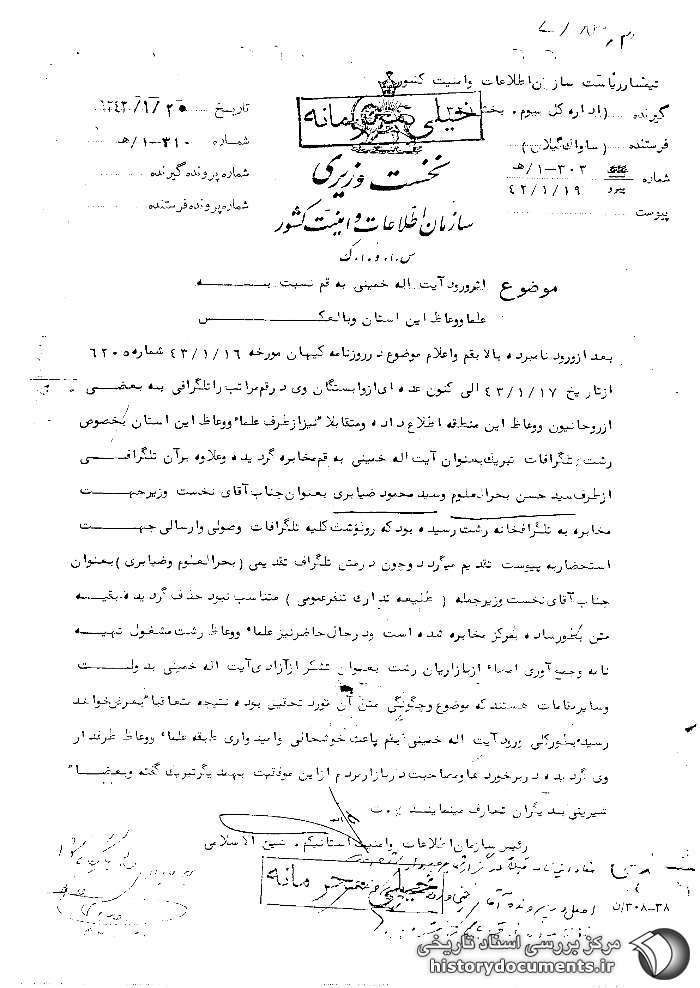 تیمسار ریاست سازمان اطلاعات وامنیت کشور
گیرنده (اداره کل سوم ـ بخش
فرستنده (ساواک گیلان)
شماره ۳۰۳-۱/هـ
۴۲/۱/۱۹
پیوست
خیلی محرمانه
نخست وزیری
سازمان اطلاعات و امنیت کشور
س.ا.و.ا.ک
تاریخ
شماره ۳۱۰-۱/هـ
شماره پرونده گیرنده
شماره پرونده فرستنده
موضوع اثرورود آیت اله خمینی به قم نسبت به
علما ووعاظ این استان وبالعکس
بعد ازورود نامبرده بالا بقم واعلام موضوع در روزنامه کیهان مورخه ۴۳/۱/۱۶ شماره ۶۲۰۵
ازتاریخ ۴۳/۱/۱۷ الی کنون عده ای ازوابستگان وی درقم مراتب راتلگرافی به بعضی
ازروحانیون ووعاظ این منطقه اطلاع داده ومتقابلا نیزازطرف علما ووعاظ این استان بخصوص
رشت تلگرافات تبریک بعنوان آیت اله خمینی به قم مخابره گردیده وعلاوه برآن تلگرافی
ازطرف سید حسن بحرالعلوم وسید محمود ضیابری بعنوان جناب آقای نخست وزیرجهت
مخابره به تلگرافخانه رشت رسیده بود که رونوشت کلیه تلگرافات وصولی وارسالی جهت
استحضاربه پیوست تقدیم میگردد وچون درمتن تلگراف تقدیمی (بحرالعلوم وضیابری) بعنوان
جناب آقای نخست وزیرجمله ( طلیعه تدارک تنفرعمومی ) متناسب نبود حذف گردیده بقیه
متن بطورساده بمرکز مخابره شده است ودرحال حاضرنیز علما ووعاظ رشت مشغول تهیه
نامه وجمع آوری امضاء ازبازاریان رشت بعنوان تشکر ازآزادی آیت اله خمینی بدولت
وسایرمقامات هستند که موضوع وچگونگی متن آن مورد تحقیق بوده نتیجه متعاقبا بعرض خواهد
رسید بطورکلی ورود آیت اله خمینی بقم باعث خوشحالی وامیدواری طبقه علما ووعاظ طرفدار
وی گردیده دربرخوردها ومصاحبت دربازارمردم ازاین موفقیت بهمدیگرتبریک گفته وبعضا
شیرینی بدیگران تعارف مینمایند
رئیس سازمان اطلاعات وامنیت استان یکم ـ شیخ الاسلامی
خیلی محرمانه
۳۰۸-۳۸
مرکز بررسی اسناد تاریخی
historydocuments.ir